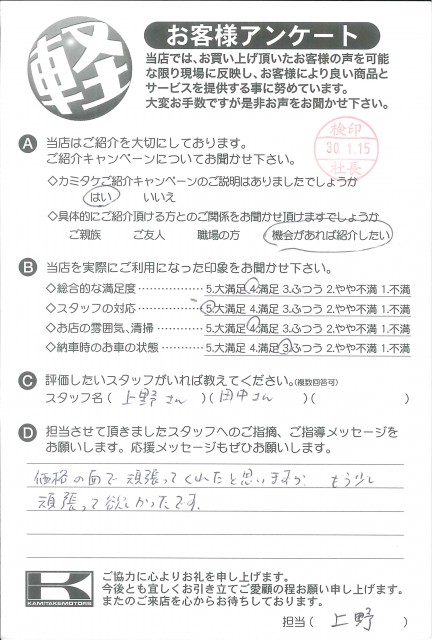 軽
お客様アンケート
当店では、お買い上げ頂いたお客様の声を可能
な限り現場に反映し、お客様により良い商品と
サービスを提供する事に努めています。
大変お手数ですが是非お声をお聞かせ下さい。
検印
30.1.15
社長
A 当店はご紹介を大切にしております。
ご紹介キャンペーンについてお聞かせ下さい。
◇カミタケご紹介キャンペーンのご説明はありましたでしょうか
はい いいえ
◇具体的にご紹介頂ける方とのご関係をお聞かせ頂けますでしょうか
ご親族 ご友人 職場の方 機会があれば紹介したい
B 当店を実際にご利用になった印象をお聞かせ下さい。
◇総合的な満足度 ・・・・・・・・・・・・ 5.大満足 4.満足 3.ふつう 2.やや不満 1.不満
◇スタッフの対応 ・・・・・・・・・・・・ 5.大満足 4.満足 3.ふつう 2.やや不満 1.不満
◇お店の雰囲気、清掃 ・・・・・・・・ 5.大満足 4.満足 3.ふつう 2.やや不満 1.不満
◇納車時のお車の状態 ・・・・・・・・ 5.大満足 4.満足 3.ふつう 2.やや不満 1.不満
C 評価したいスタッフがいれば教えてください。(複数回答可)
スタッフ名 ( 上野さん )( 田中さん )( )
D 担当させて頂きましたスタッフへのご指摘、ご指導メッセージを
お願いします。応援メッセージもぜひお願いします。
価格の面で頑張ってくれたと思いますが もう少し
頑張って欲しかったです。
K
KAMITAKEMOTORS
ご協力に心よりお礼を申し上げます。
今後とも宜しくお引き立てご愛顧の程お願い申し上げます。
またのご来店を心からお待ちしております。
担当 ( 上野 )